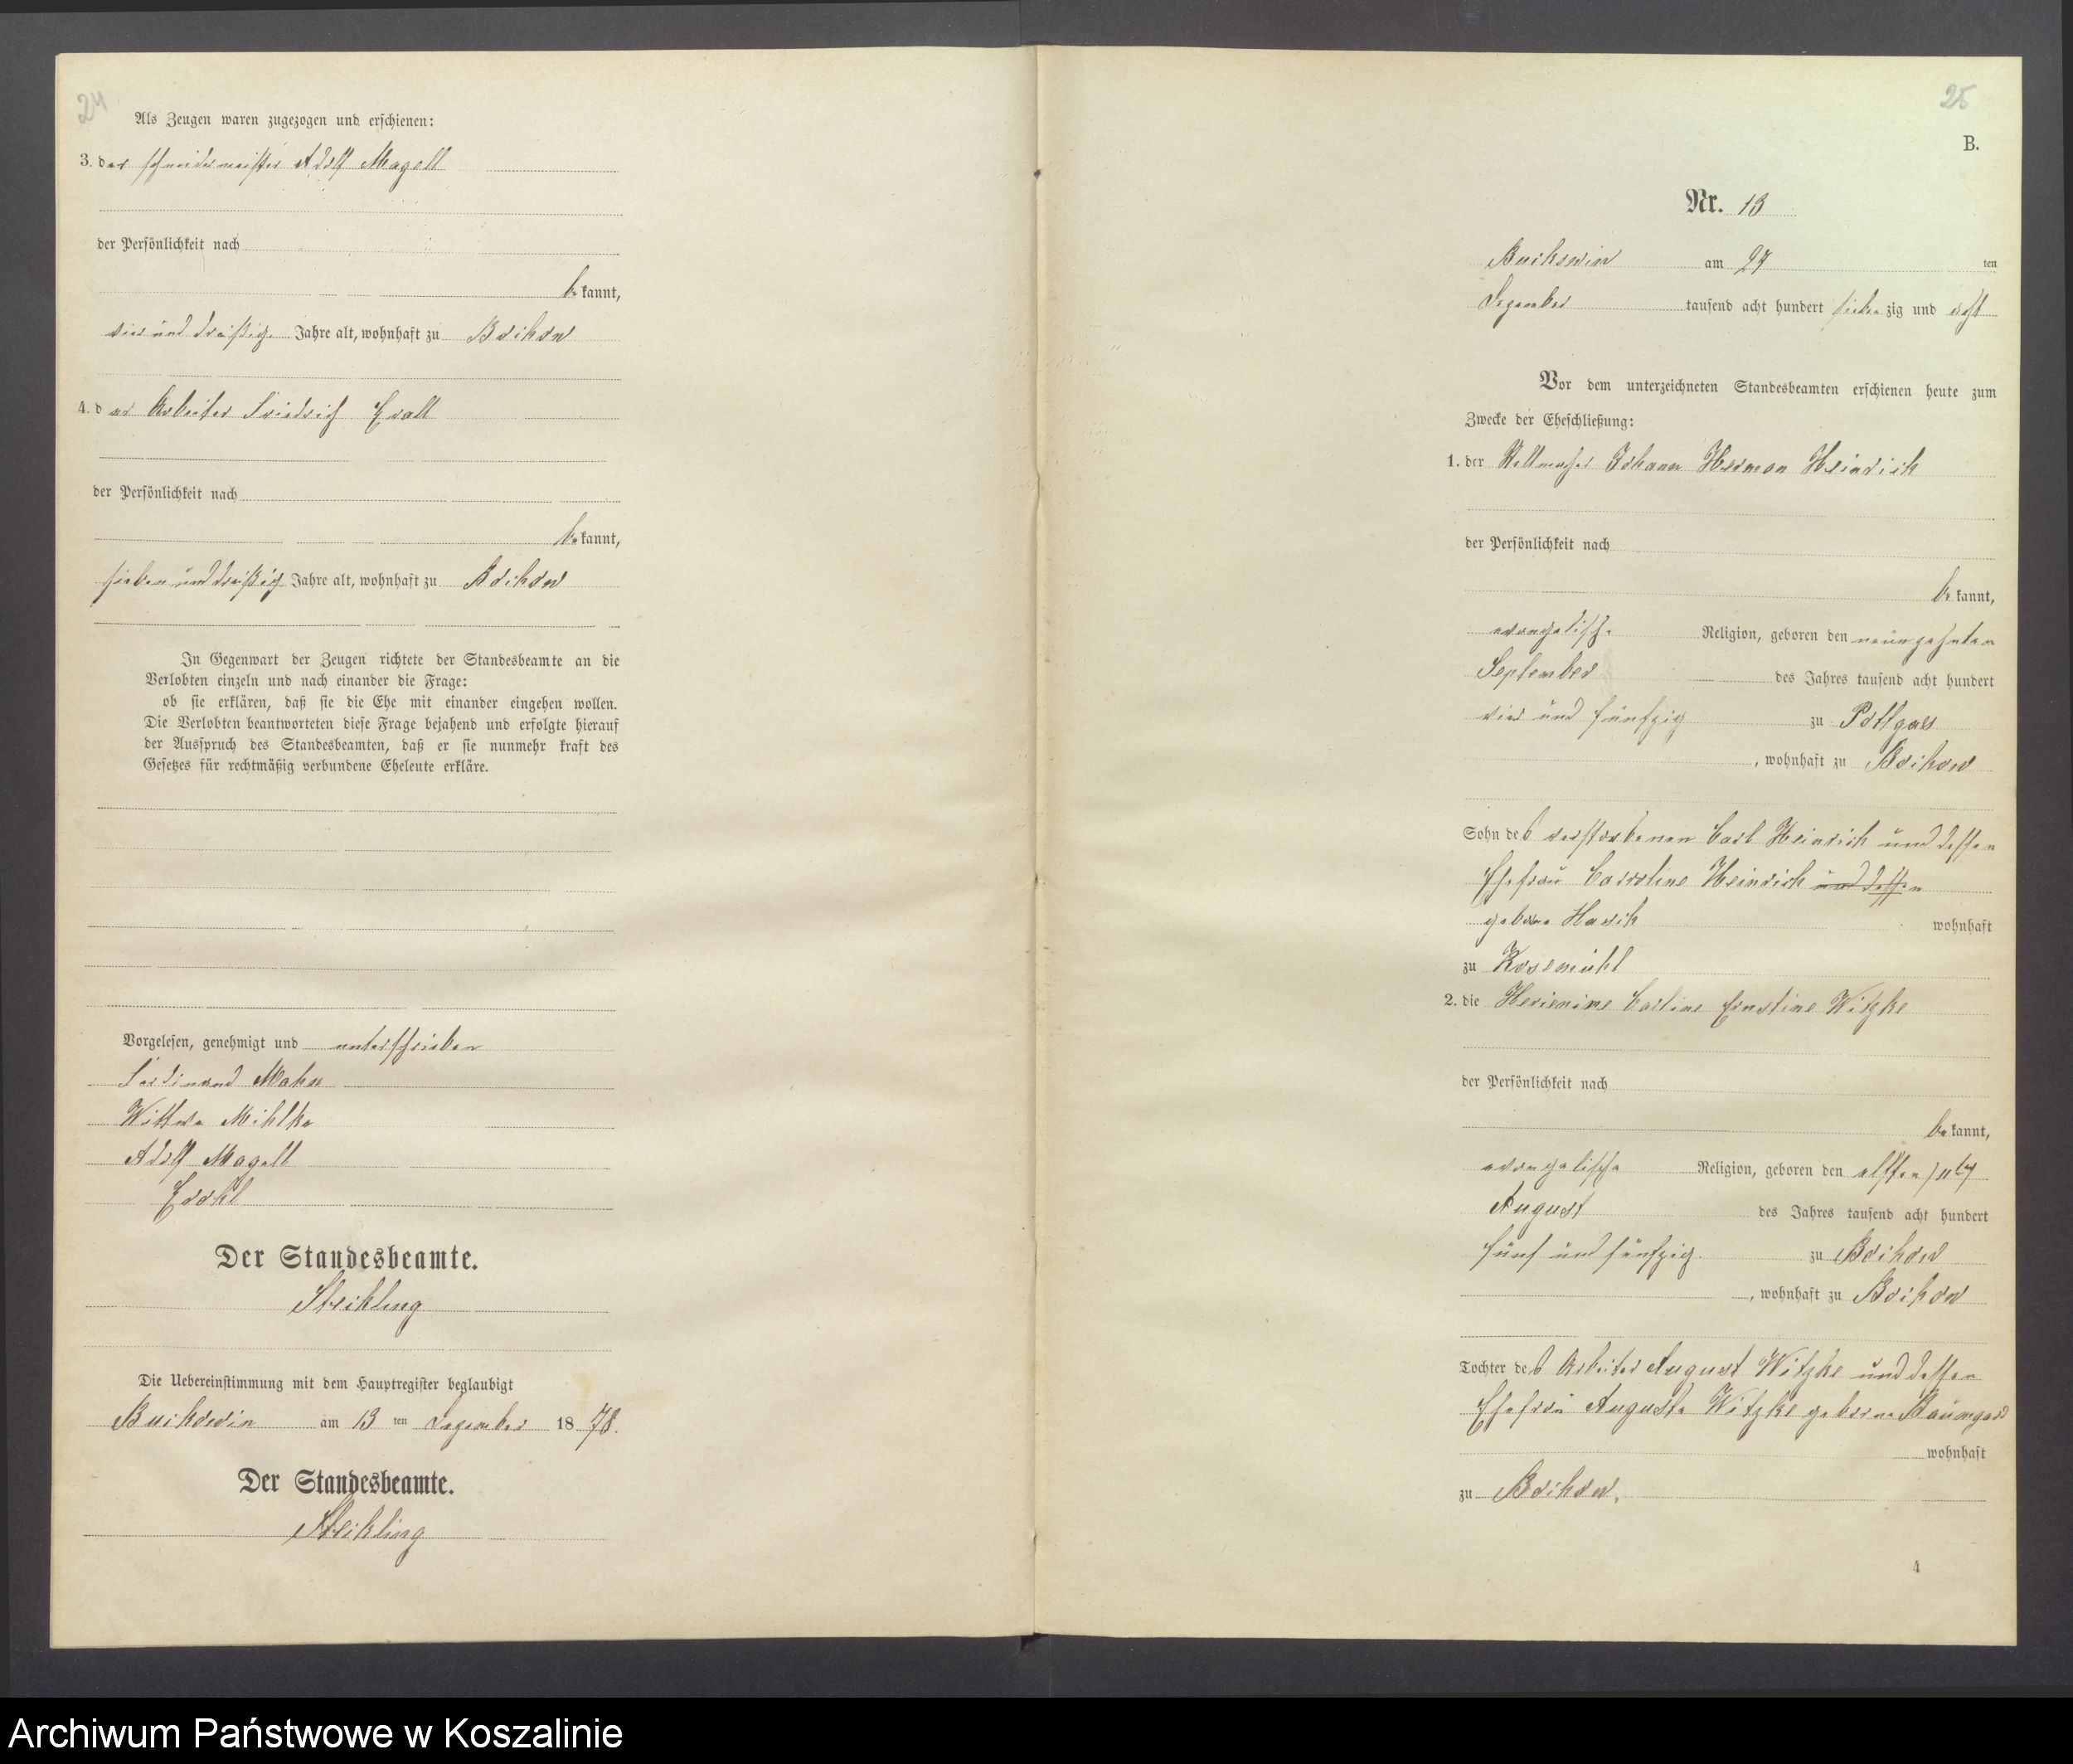 24
Als Zeugen waren zugezogen und erschienen:
3. der Schneidermeister Adolf Magall
der Persönlichkeit nach
be kannt,
vier und dreißig Jahre alt, wohnhaft zu Boikow
4. der Arbeiter Friedrich
der Persönlichkeit nach
be kannt,
sieben und dreißig Jahre alt, wohnhaft zu Boikow
In Gegenwart der Zeugen richtete der Standesbeamte an die
Verlobten einzeln und nach einander die Frage:
ob sie erklären, daß sie die Ehe mit einander eingehen wollen.
Die Verlobten beantworteten diese Frage bejahend und erfolgte hierauf
der Ausspruch des Standesbeamten, daß er sie nunmehr kraft des
Gesetzes für rechtmäßig verbundene Eheleute erkläre.
Vorgelesen, genehmigt und unterschrieben
Ferdinand Mahn
Wittwe Mihlke
Adolf Magall
Der Standesbeamte.
Die Uebereinstimmung mit dem Hauptregister beglaubigt
Buckowin am 13 ten Dezember 18 78.
Der Standesbeamte.
25
B.
Nr. 13
Buckowin am 27 ten
Dezember tausend acht hundert sieben zig und acht
Vor dem unterzeichneten Standesbeamten erschienen heute zum
Zwecke der Eheschließung:
1. der Johann Herman Heinrich
der Persönlichkeit nach
be kannt,
evangelische Religion, geboren den neunzehnten
September des Jahres tausend acht hundert
vier und fünfzig zu
, wohnhaft zu Boikow
Sohn des verstorbenen Carl Heinrich und dessen
Ehefrau Carroline Heinrich und dessen
geborne wohnhaft
zu Rosemühl
2. die Carline Ernstine Witzke
der Persönlichkeit nach
be kannt,
evangelische Religion, geboren den elften /11t/
August des Jahres tausend acht hundert
fünf und fünfzig zu Boikow
, wohnhaft zu Boikow
Tochter des Arbeiter August Witzke und dessen
Ehefrau Auguste Witzke geborne Baumgard
wohnhaft
zu Boikow.
4
Archiwum Państwowe w Koszalinie